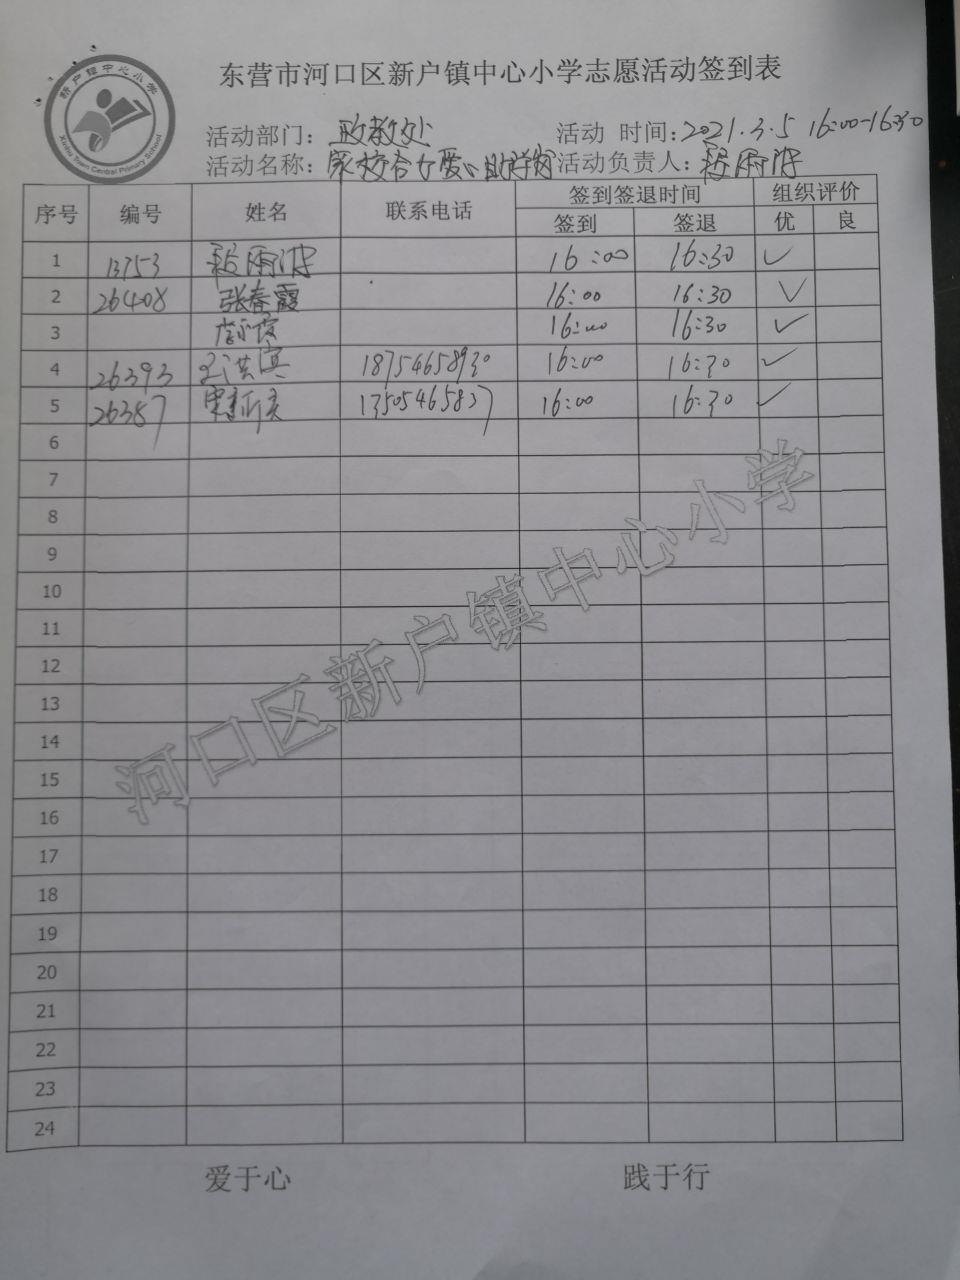 东营市河口区新户镇中心小学志愿活动签到表
新户镇中心小学
Xinhu Town Central Primary School
活动部门：政教处 活动 时间：2021.3.5 16:00-16:30
活动名称：家校合力爱心助学 活动负责人：
序号 编号 姓名 联系电话 签到签退时间 组织评价
签到 签退 优 良
1 13753 16:00 16:30 ✓
2 26408 张春霞 16:00 16:30 ✓
3 16:00 16:30 ✓
4 26393 王洪滨 18754658930 16:00 16:30 ✓
5 26387 13505465837 16:00 16:30 ✓
6
7
8
9
10
11
12
13
14
15
16
17
18
19
20
21
22
23
24
河口区新户镇中心小学
爱于心 践于行